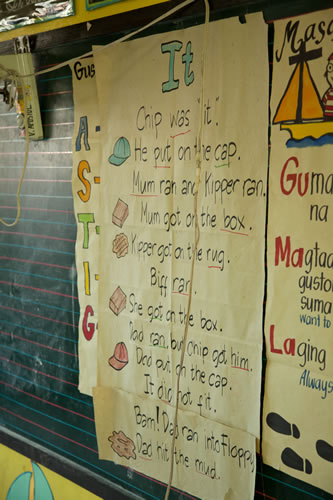 It
Chip was "it".
He put on the cap.
Mum ran and Kipper ran.
Mum got on the box.
Kipper got on the rug.
Biff ran.
She got on the box.
Dad ran, but Chip got him.
Dad put on the cap.
It did not fit.
Bam! Dad ran into Floppy.
Dad hit the mud.
Gus
A-
S-
T-
I-
G-
Masa
Guma
na
Magtaa
gusto
suma
want to
Laging
Always